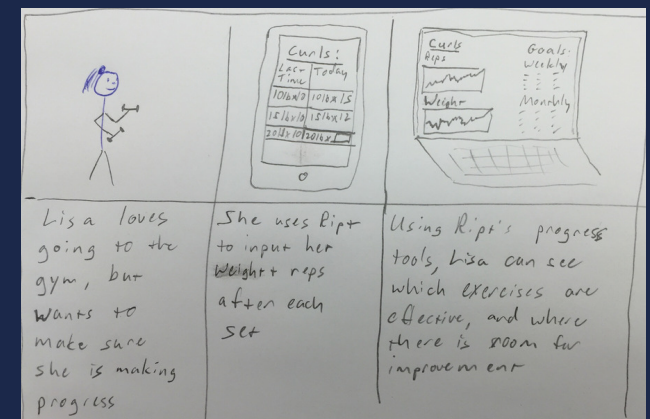 Curls:
Last Time
Today
10lbx
10lbx15
15lbx
15lbx12
20lbx10
20lbx
Curls
Reps
Weight
Goals-
Weekly
Monthly
Lisa loves
going to the
gym, but
wants to
make sure
she is making
progress
She uses Ript
to input her
Weight + reps
after each
set
Using Ript's progress
tools, Lisa can see
which exercises are
effective, and where
there is room for
improvement